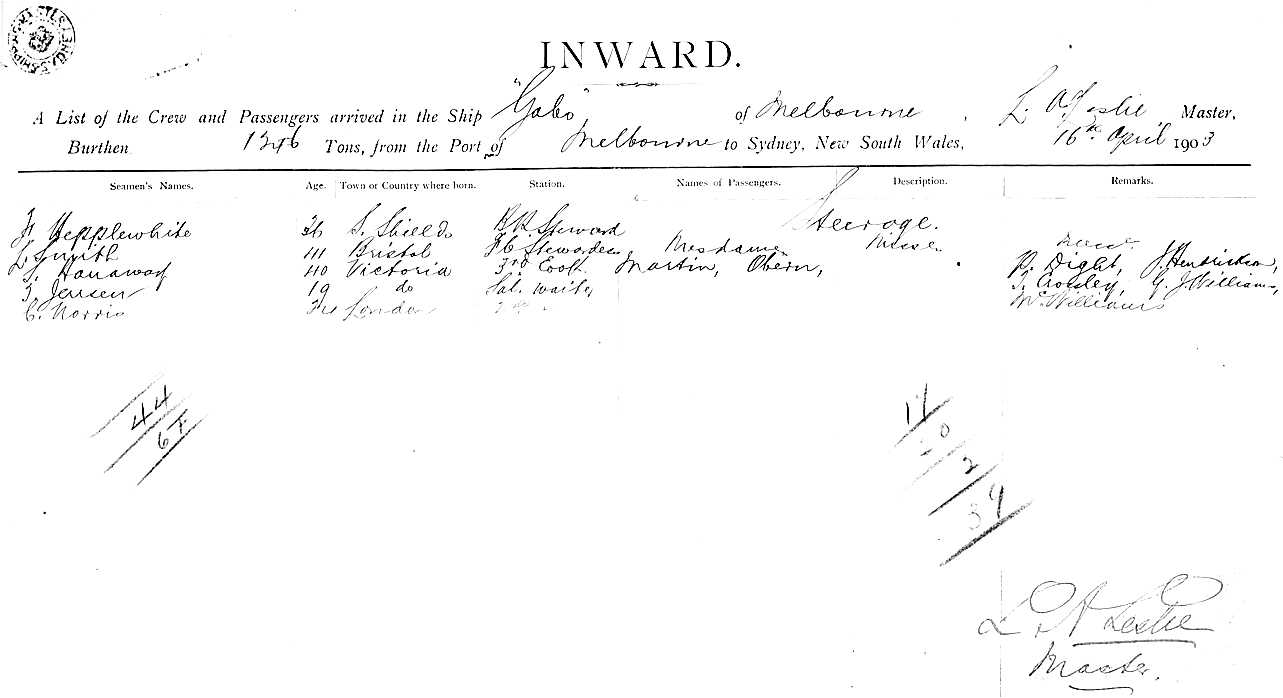 INWARD.
A List of the Crew and Passengers arrived in the Ship "Gabo" of Melbourne, L. A. Leslie, Master,
Burthen Tons, from the Port of Melbourne to Sydney, New South Wales, 16th April 1903
Seamen's Names. Age. Town or Country where born. Station. Names of Passengers. Description. Remarks.
Steerage.
Hepplewhite S. Shields Steward
L. Smith Bristol Stewardess Mesdames Misses
Hanaway 40 Victoria 3rd Cook Martin, Obern, Dight, J. Hendrickson,
Jensen 19 do Sal. Waiter Crosley, G. J. Williams,
C. Norris London McWilliams
44
17
2
L. A. Leslie
Master.